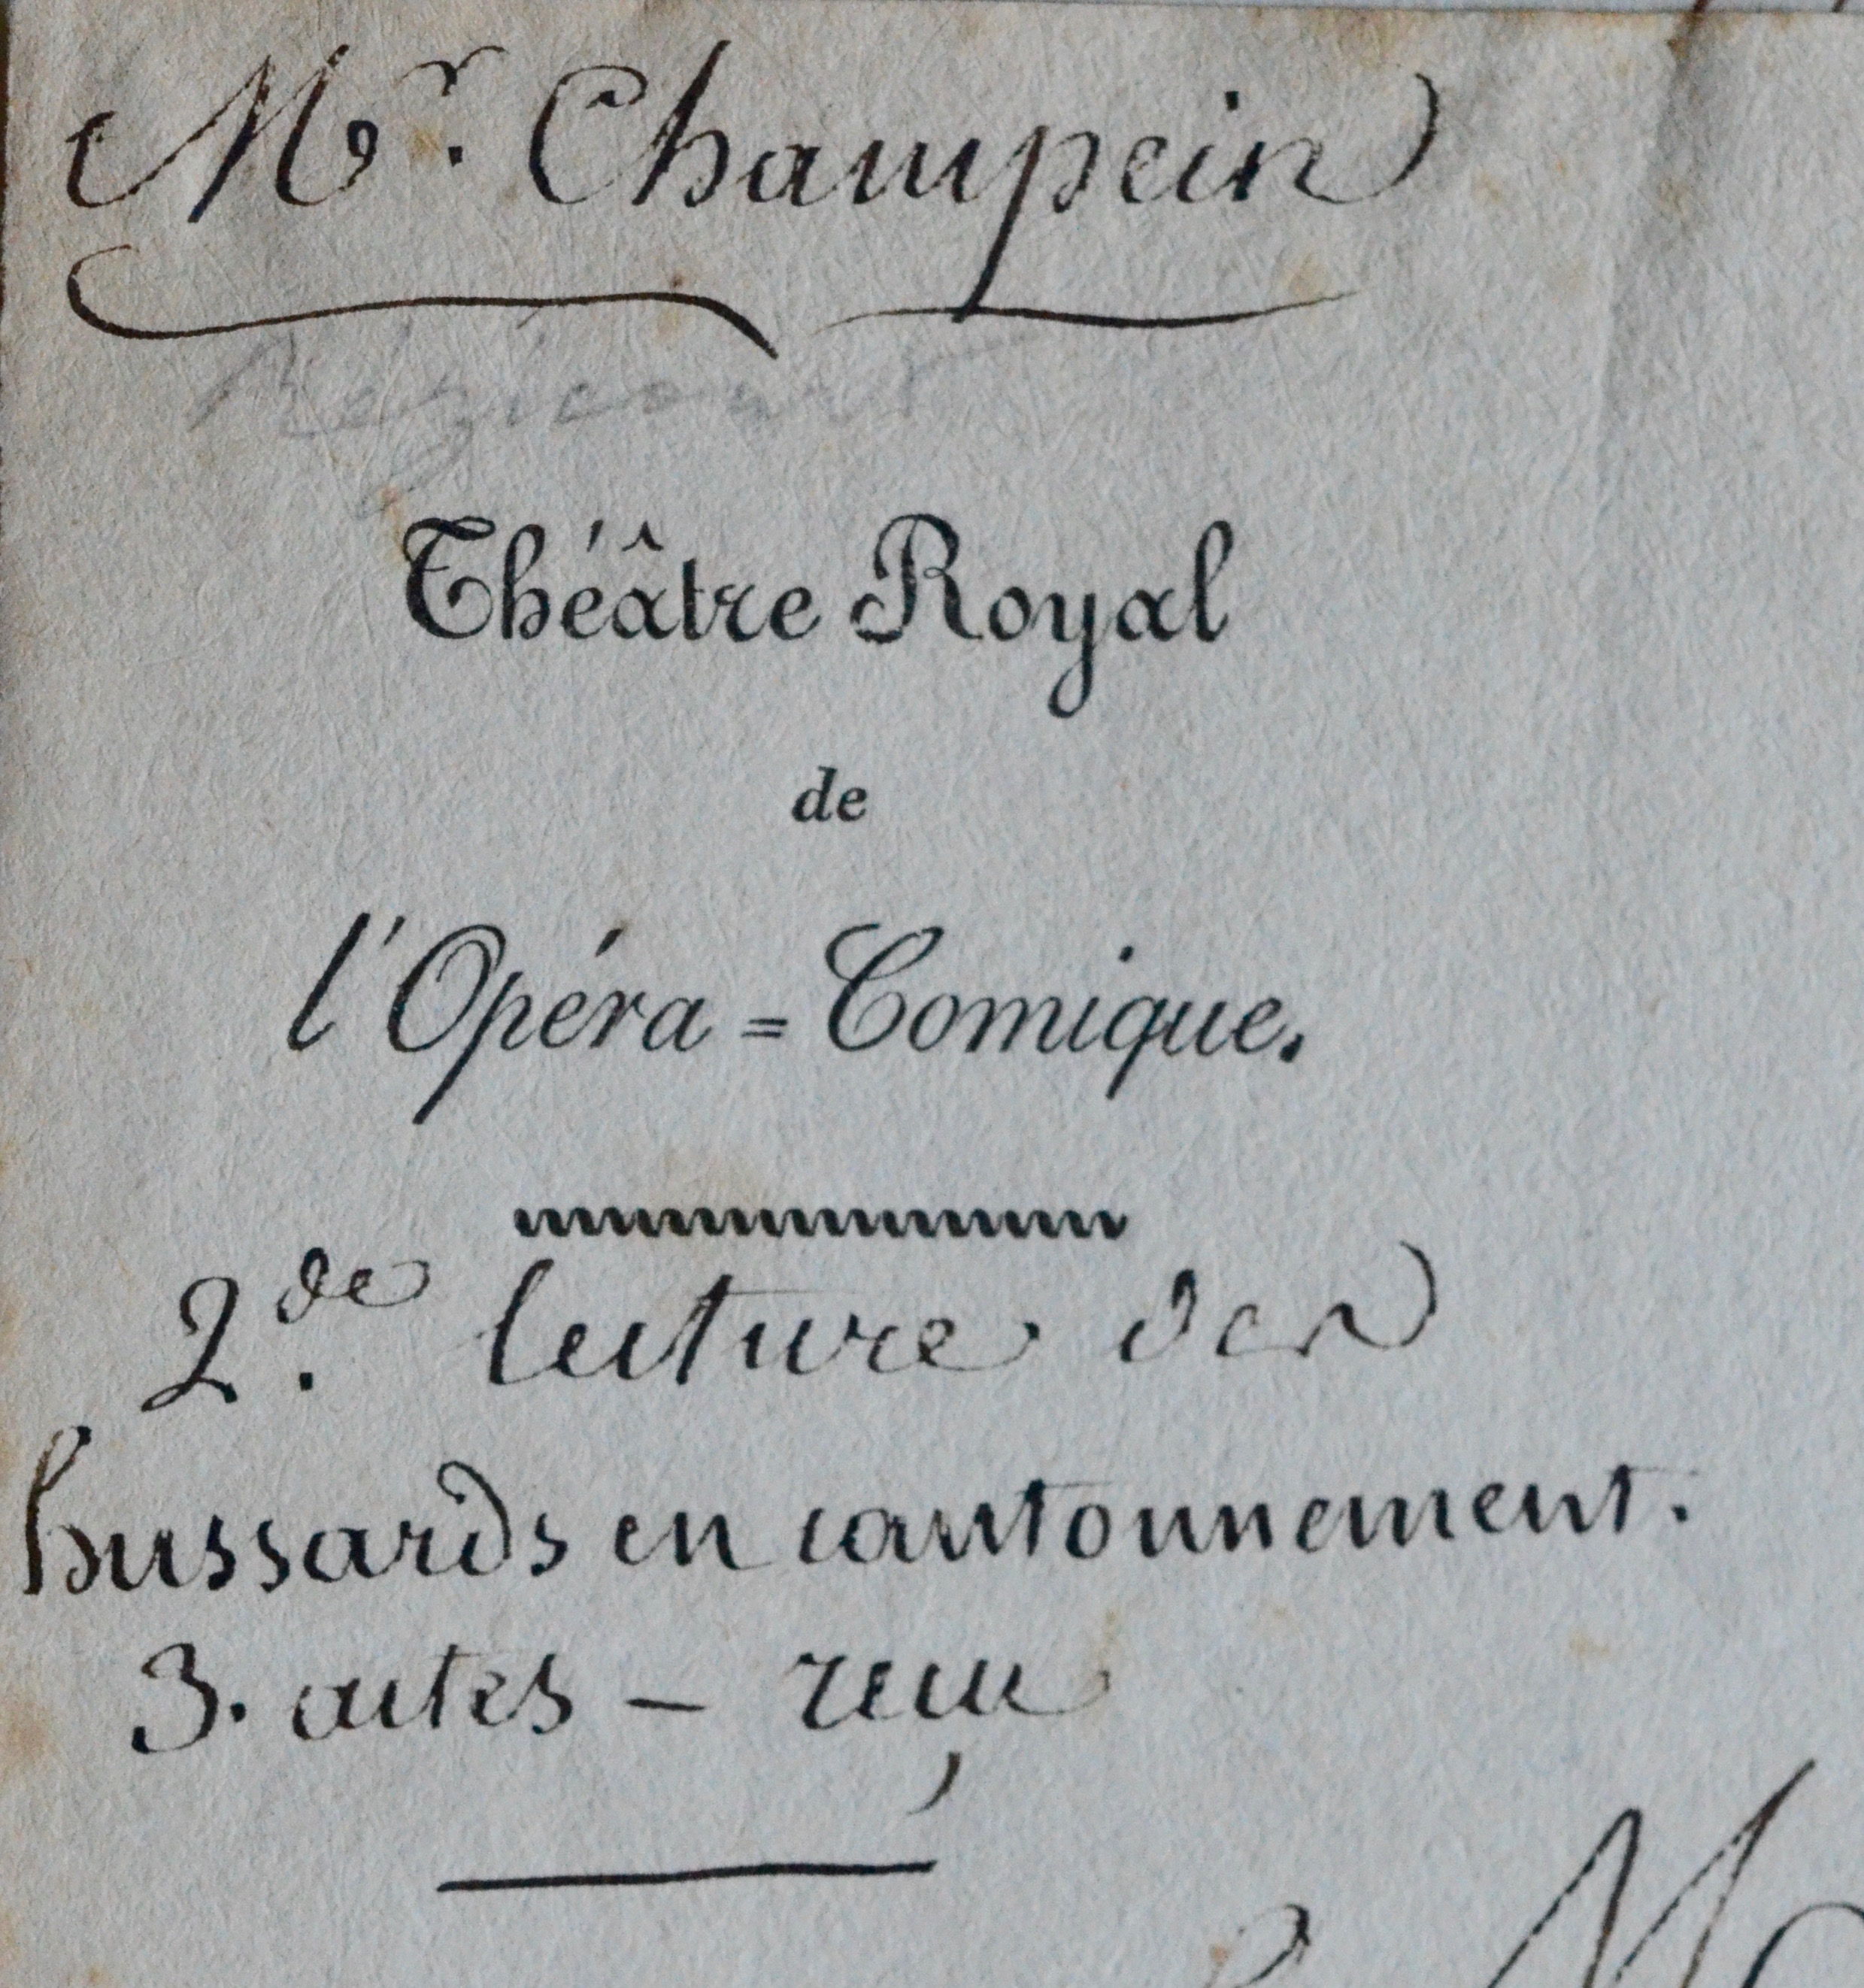 Mr. Champein
Théâtre Royal
de
l'Opéra = Comique.
2de. lecture des
hussards en cantonnement.
3. actes – reçu